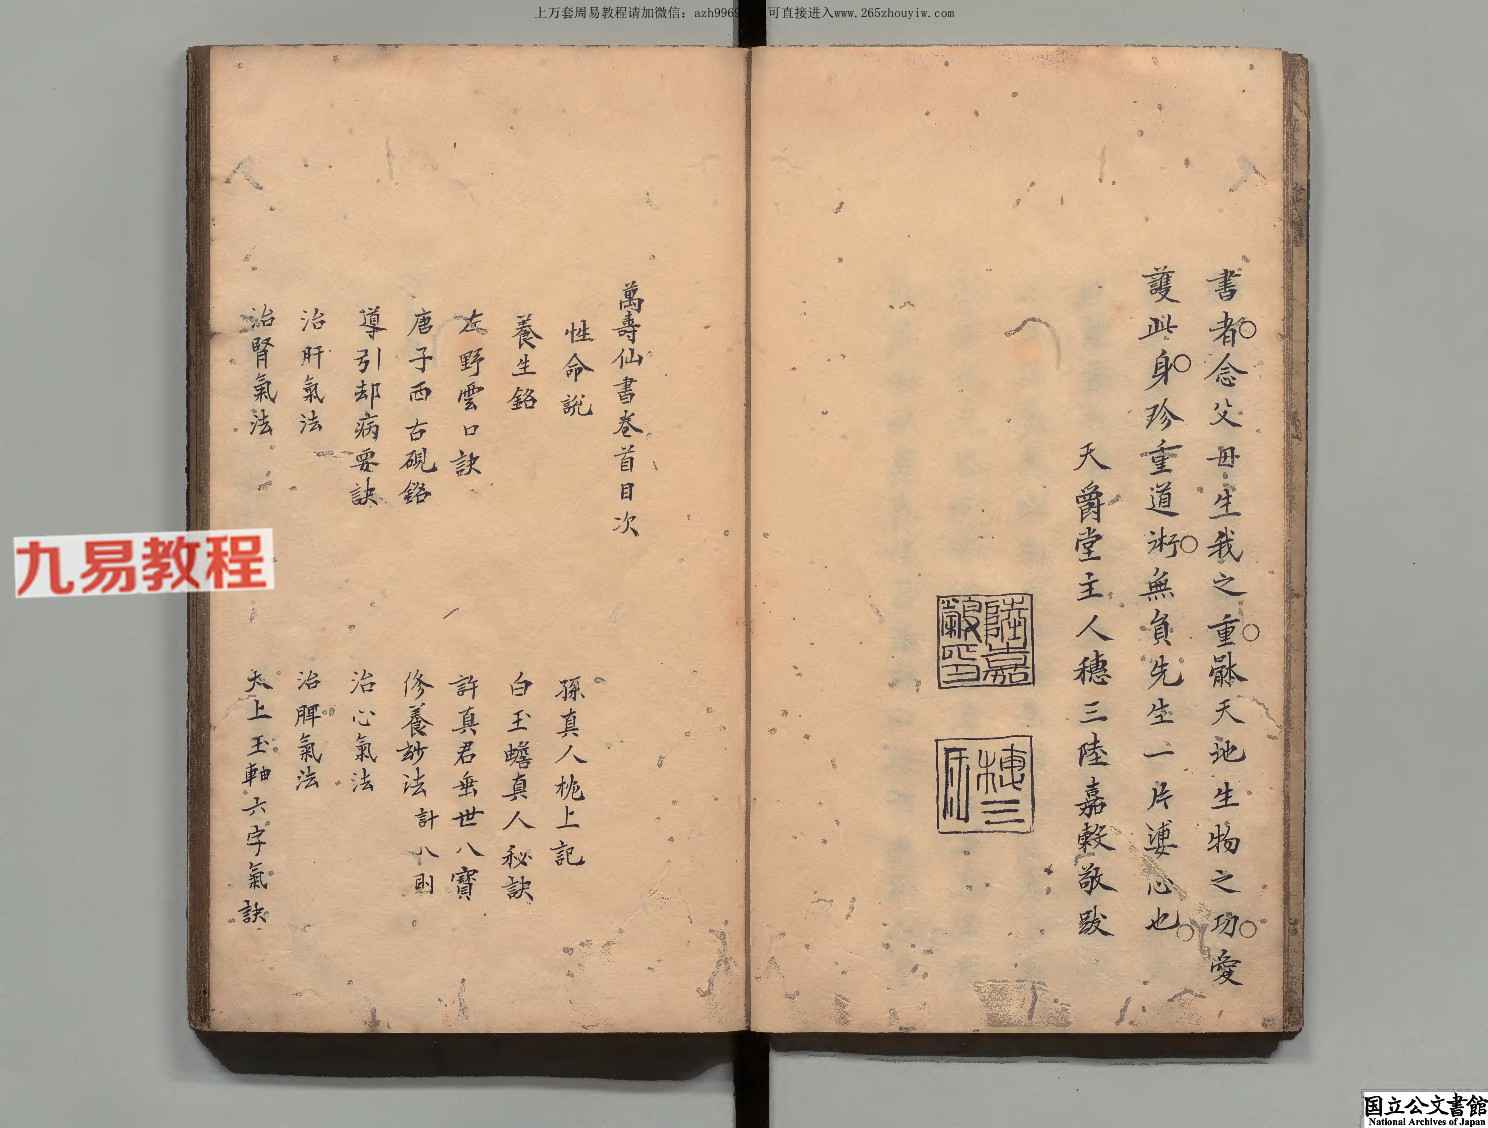 上万套周易教程请加微信：azh9969
可直接进入www.265zhouyiw.com
書者念父母生我之重骸天地生物之功愛
護此身珍重道術無負先生一片婆心也
天爵堂主人穗三陸嘉穀敬跋
陸嘉
穀印
穗三
萬壽仙書卷首目次
性命說
孫真人枕上記
養生銘
白玉蟾真人秘訣
左野雲口訣
許真君垂世八寶
唐子西古硯銘
修養玅法計八則
導引却病要訣
治心氣法
治肝氣法
治脾氣法
治腎氣法
太上玉軸六字氣訣
九易教程
国立公文書館
National Archives of Japan